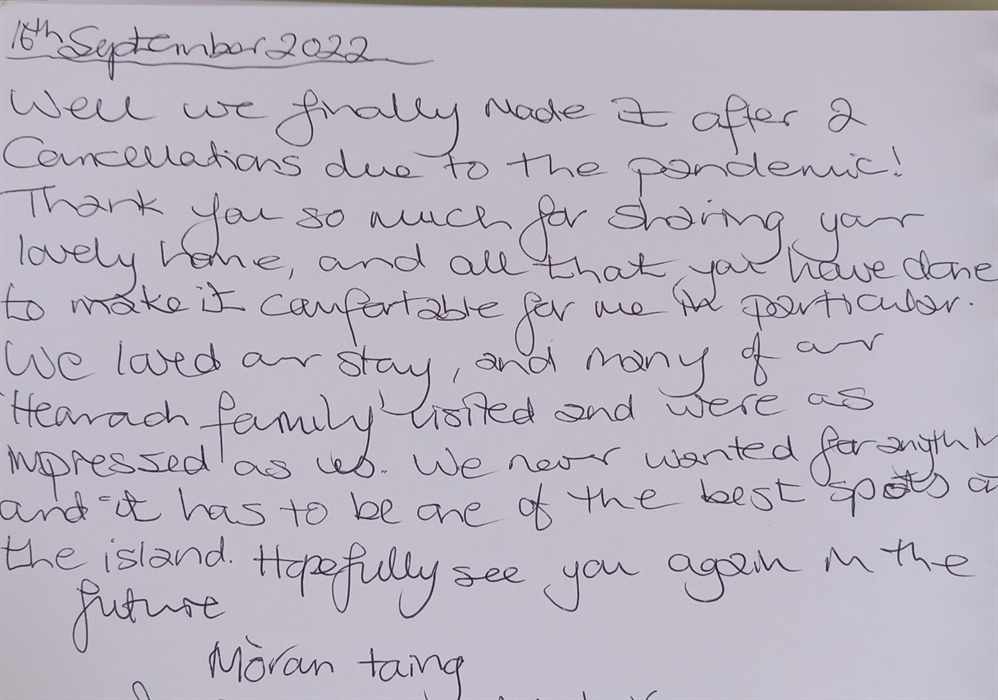 16th September 2022
Well we finally made it after 2
Cancellations due to the pandemic!
Thank you so much for sharing your
lovely home, and all that you have done
to make it comfortable for me in particular.
We loved our stay, and many of our
'Hearach family' visited and were as
impressed as us. We never wanted for anythin
and it has to be one of the best spots o
the island. Hopefully see you again in the
future
Mòran taing